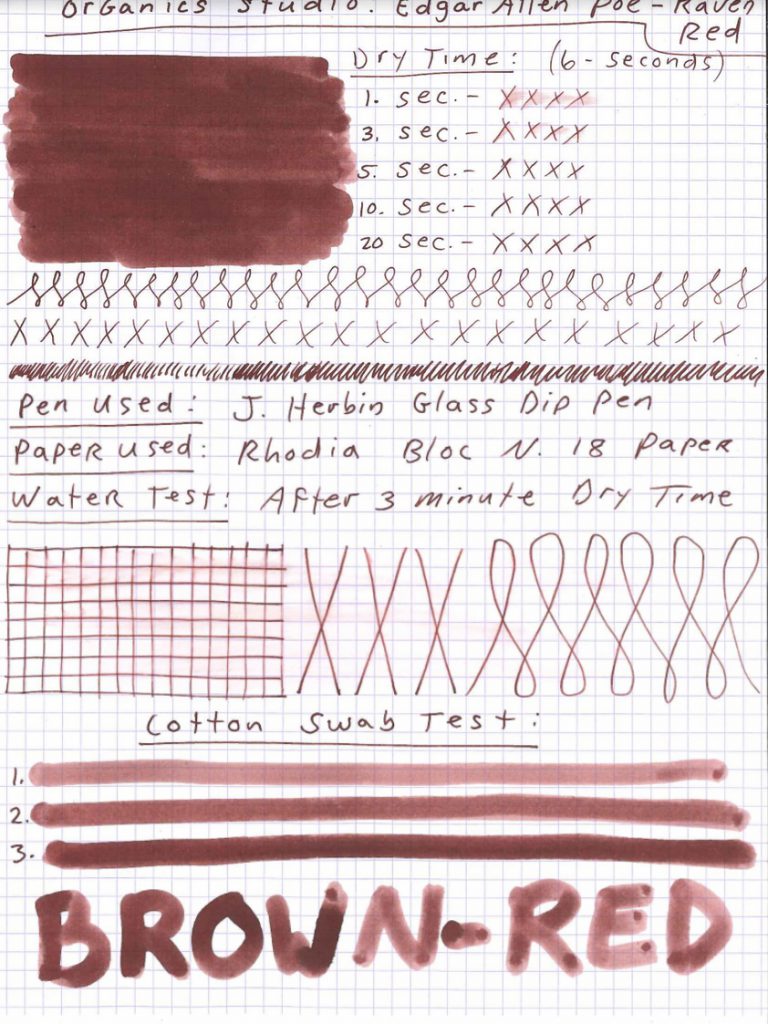 Organics Studio: Edgar Allen Poe - Raven
Red
Dry Time: (6 - seconds)
1. sec. - X X X X
3. sec. - X X X X
5. sec. - X X X X
10. sec. - X X X X
20 sec. - X X X X
X X X X X X X X X X X X X X X X X X X X X X
Pen used: J. Herbin Glass Dip Pen
Paper used: Rhodia Bloc N. 18 Paper
Water Test: After 3 minute Dry Time
X X X
Cotton Swab Test:
1.
2.
3.
BROWN-RED